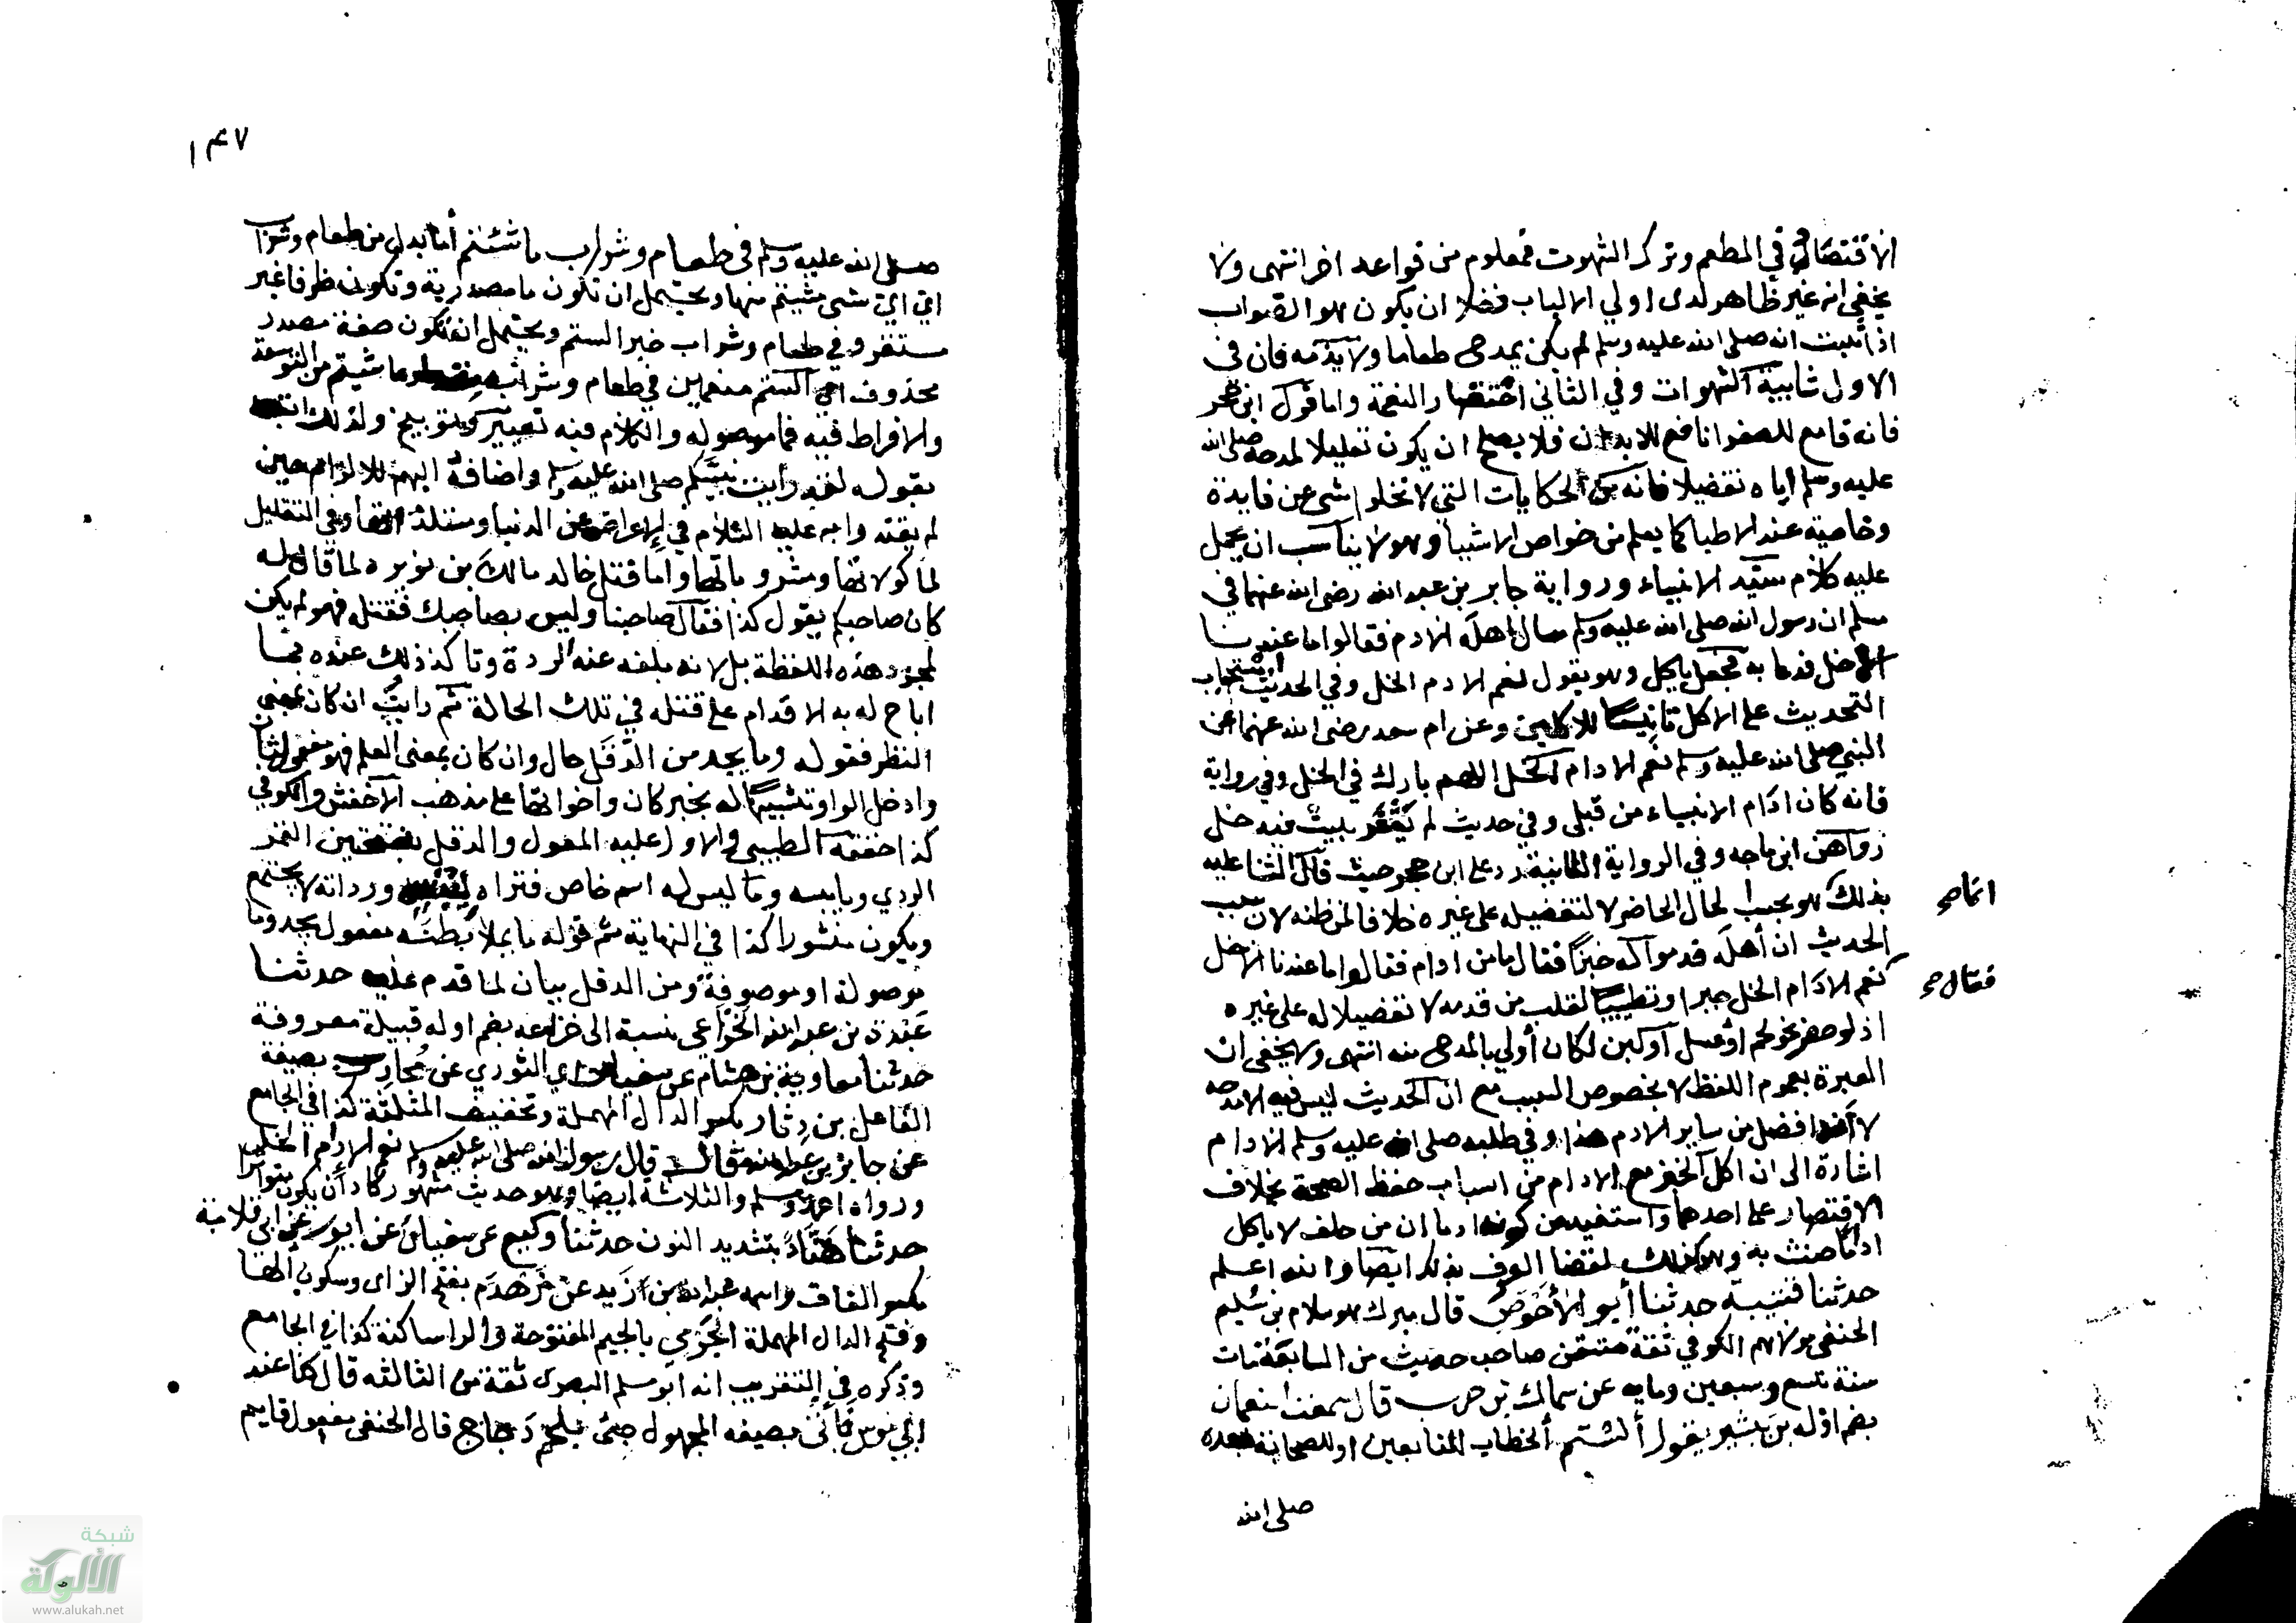 الاقتصار في المطعم وترك الشهوت فمعلوم من قواعد اخر انتهى ولا
يخفى انه غير ظاهر لدى اولي الالباب فضلا ان يكون هو الصواب
اذا ثبت انه صلى الله عليه وسلم لم يكن يمدح طعاما ولا يذمه فان في
الاول شايبة الشهوات وفي الثاني احتقار النعمة واما قول ابن حجر
فانه قامع للصفرا نافع للابدان فلا يصلح ان يكون تعليلا لمدحه صلى الله
عليه وسلم اياه تفضيلا فانه من الحكايات التي لا تخلوا شى عن فايدة
وخاصية عند الاطبا كما يعلم من خواص الاشيا وهو لا يناسب ان يحمل
عليه كلام سيد الانبياء ورواية جابر بن عبد الله رضى الله عنهما في
مسلم ان رسول الله صلى الله عليه وسلم سال اهله الادم فقالوا ما عندنا
الا خل فدعا به فجعل ياكل وهو يقول نعم الادم الخل وفي الحديث استحباب
التحديث على الاكل تانيسا للاكلين وعن ام سعد رضى الله عنها عن
النبي صلى الله عليه وسلم نعم الادام الخل اللهم بارك في الخل وفي رواية
فانه كان ادام الانبياء من قبلى وفي حديث لم يقفر بيت فيه خل
رواهن ابن ماجه وفي الرواية الثانية رد على ابن حجر حيث قال الثنا عليه
بذلك هو بحسب الحال الحاضر لا لتفضيله على غيره خلافا لمن ظنه لان سبب
انما صح
الحديث ان اهله قدموا له خبزا فقال ما من ادام فقالوا ما عندنا الا خل
فقال صح
نعم الادام الخل جبرا وتطييبا لقلب من قدمه لا تفضيلا له على غيره
اذ لو حضر نحو لحم او عسل او لبن لكان أولي بالمدح منه انتهى ولا يخفى ان
العبرة بعموم اللفظ لا بخصوص السبب مع ان الحديث ليس فيه الا مدحه
لا انه افضل من ساير الادم هذا وفي طلبه صلى الله عليه وسلم الادام
اشارة الى ان اكل الخبز مع الادام من اسباب حفظ الصحة بخلاف
الاقتصار على احدهما واستفيد من كونه ادما ان من حلف لا ياكل
ادما حنث به وهو كذلك لقضا العرف بذلك ايضا والله اعلم
حدثنا قتيبة حدثنا أبو الأحوص قال ميرك هو سلام بن سليم
الحنفي مولاهم الكوفي ثقة متقن صاحب حديث من السابعة مات
سنة تسع وسبعين ومايه عن سماك بن حرب قال سمعت النعمان
بضم اوله بن بشير يقول ألستم الخطاب للتابعين او للصحابة بعده
صلى الله
١٤٧
صلى الله عليه وسلم في طعام وشراب ما شئتم أما بدل من طعام وشراب
اي اي شى شيتم منها ويحتمل ان تكون ما مصدرية وتكون ظرفا غير
مستقر وفي طعام وشراب خبر الستم ويحتمل ان تكون صفة مصدر
محذوف اي الستم منعمين في طعام وشراب ما شيتم من التوسعة
والافراط فيه فما موصوله والكلام فيه تعيير وتوبيخ ولذلك اتبعه
بقوله لقد رأيت نبيكم صلى الله عليه وسلم واضافة اليهم للالزام حين
لم يقتدوا به عليه السلام في الاعراض عن الدنيا ومستلذاتها وفي التقليل
لماكولاتها ومشروباتها واما قتل خالد مالك بن نويره لما قال له
كان صاحبكم يقول كذا فقال صاحبنا وليس بصاحبك فقتله فهو لم يكن
لمجرد هذه اللفظة بل لانه بلغه عنه الردة وتاكد ذلك عنده بما
اباح له به الاقدام على قتله في تلك الحالة ثم رايت ان كان بمعنى
النظر فقوله وما يجد من الدقل حال وان كان بمعنى العلم فهو مفعول ثان
وادخل الواو تشبيها له بخبر كان واخواتها على مذهب الاخفش والكوفي
كذا حققه الطيبي والاول عليه المعول والدقل بفتحتين التمر
الردي ويابسه وما ليس له اسم خاص فتراه ليبسه وردائه لا يجتمع
ويكون منثورا كذا في النهاية ثم قوله ما يملأ بطنه مفعول يجد وما
موصولة او موصوفة ومن الدقل بيان لما قدم عليه حدثنا
عبدة بن عبد الله الخزاعي نسبة الى خزاعه بضم اوله قبيلة معروفة
حدثنا معاوية بن هشام عن سفيان اي الثوري عن محارب بصيغة
الفاعل بن دثار بكسر الدال المهملة وتخفيف المثلثة كذا في الجامع
عن جابر بن عبد الله قال قال رسول الله صلى الله عليه وسلم نعم الادام الخل
ورواه احمد ومسلم والثلاثة ايضا وهو حديث مشهور كاد أن يكون متواترا
حدثنا هناد بتشديد النون حدثنا وكيع عن سفيان عن ايوب عن ابي قلابة
بكسر القاف واسمه عبد الله بن زيد عن زهدم بفتح الزاى وسكون الها
وفتح الدال المهملة الجرمي بالجيم المفتوحة والراء ساكنة كذا في الجامع
وذكره في التقريب انه ابو مسلم البصرى ثقة من الثالثه قال كنا عند
ابي موسى فأتى بصيغه المجهول جئى بلحم دجاج قال الحنفى مفعول قايم